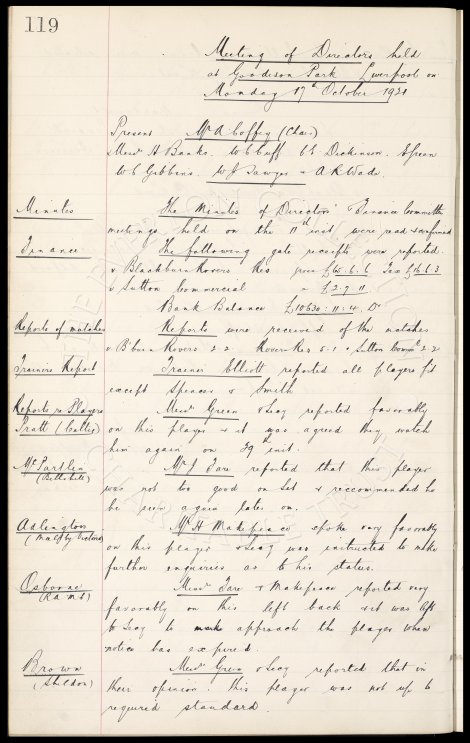 119
Meeting of Directors held
at Goodison Park Liverpool on
Monday 17th October 1921
Present Mr A Coffey (Chair)
Messrs H Banks. W C Cuff. C S Dickinson. E Green
W C Gibbins. W J Sawyer & A R Wade.
Minutes The Minutes of Directors & Finance Committee
meetings held on the 11th inst were read & confirmed
Finance The following gate receipts were reported.
v Blackburn Rovers Res £65.6.6 Tax £16.6.3
v Sutton Commercial " £2.7.11
Bank Balance £10630:11:4 Dr
Reports of matches Reports were received of the matches
v B'burn Rovers 2-2 Rovers Res 5-1 & Sutton Comml 2-2
Trainers Report Trainer Elliott reported all players fit
except Spencer & Smith
Reports re Players Messrs Green & Secy reported favorably
Pratt (Celtic) on this player & it was agreed they watch
him again on 29th inst.
McPartlen Mr J Fare reported that this player
(Bellshill) was not too good on Sat & reccommended he
be seen again later on.
Adlington Mr H Makepeace spoke very favorably
(Maltby Victoria) on this player & Secy was instructed to make
further enquiries as to his status.
Osborne Messrs Fare & Makepeace reported very
(RAMS) favorably on this left back & it was left
to Secy to approach the player when
notice has expired.
Brown Messrs Green & Secy reported that in
(Shildon) their opinion this player was not up to
required standard.